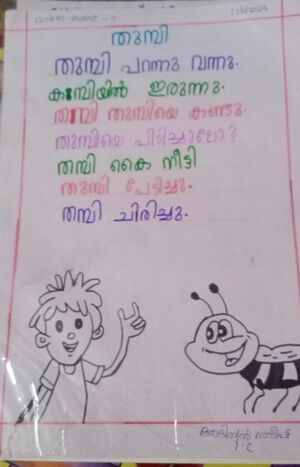 തുമ്പി
തുമ്പി പറന്നു വന്നു.
കമ്പിയിൽ ഇരുന്നു.
തമ്പി തുമ്പിയെ കണ്ടു.
തുമ്പിയെ പിടിച്ചാലോ?
തമ്പി കൈ നീട്ടി
തുമ്പി പേടിച്ചു.
തമ്പി ചിരിച്ചു.